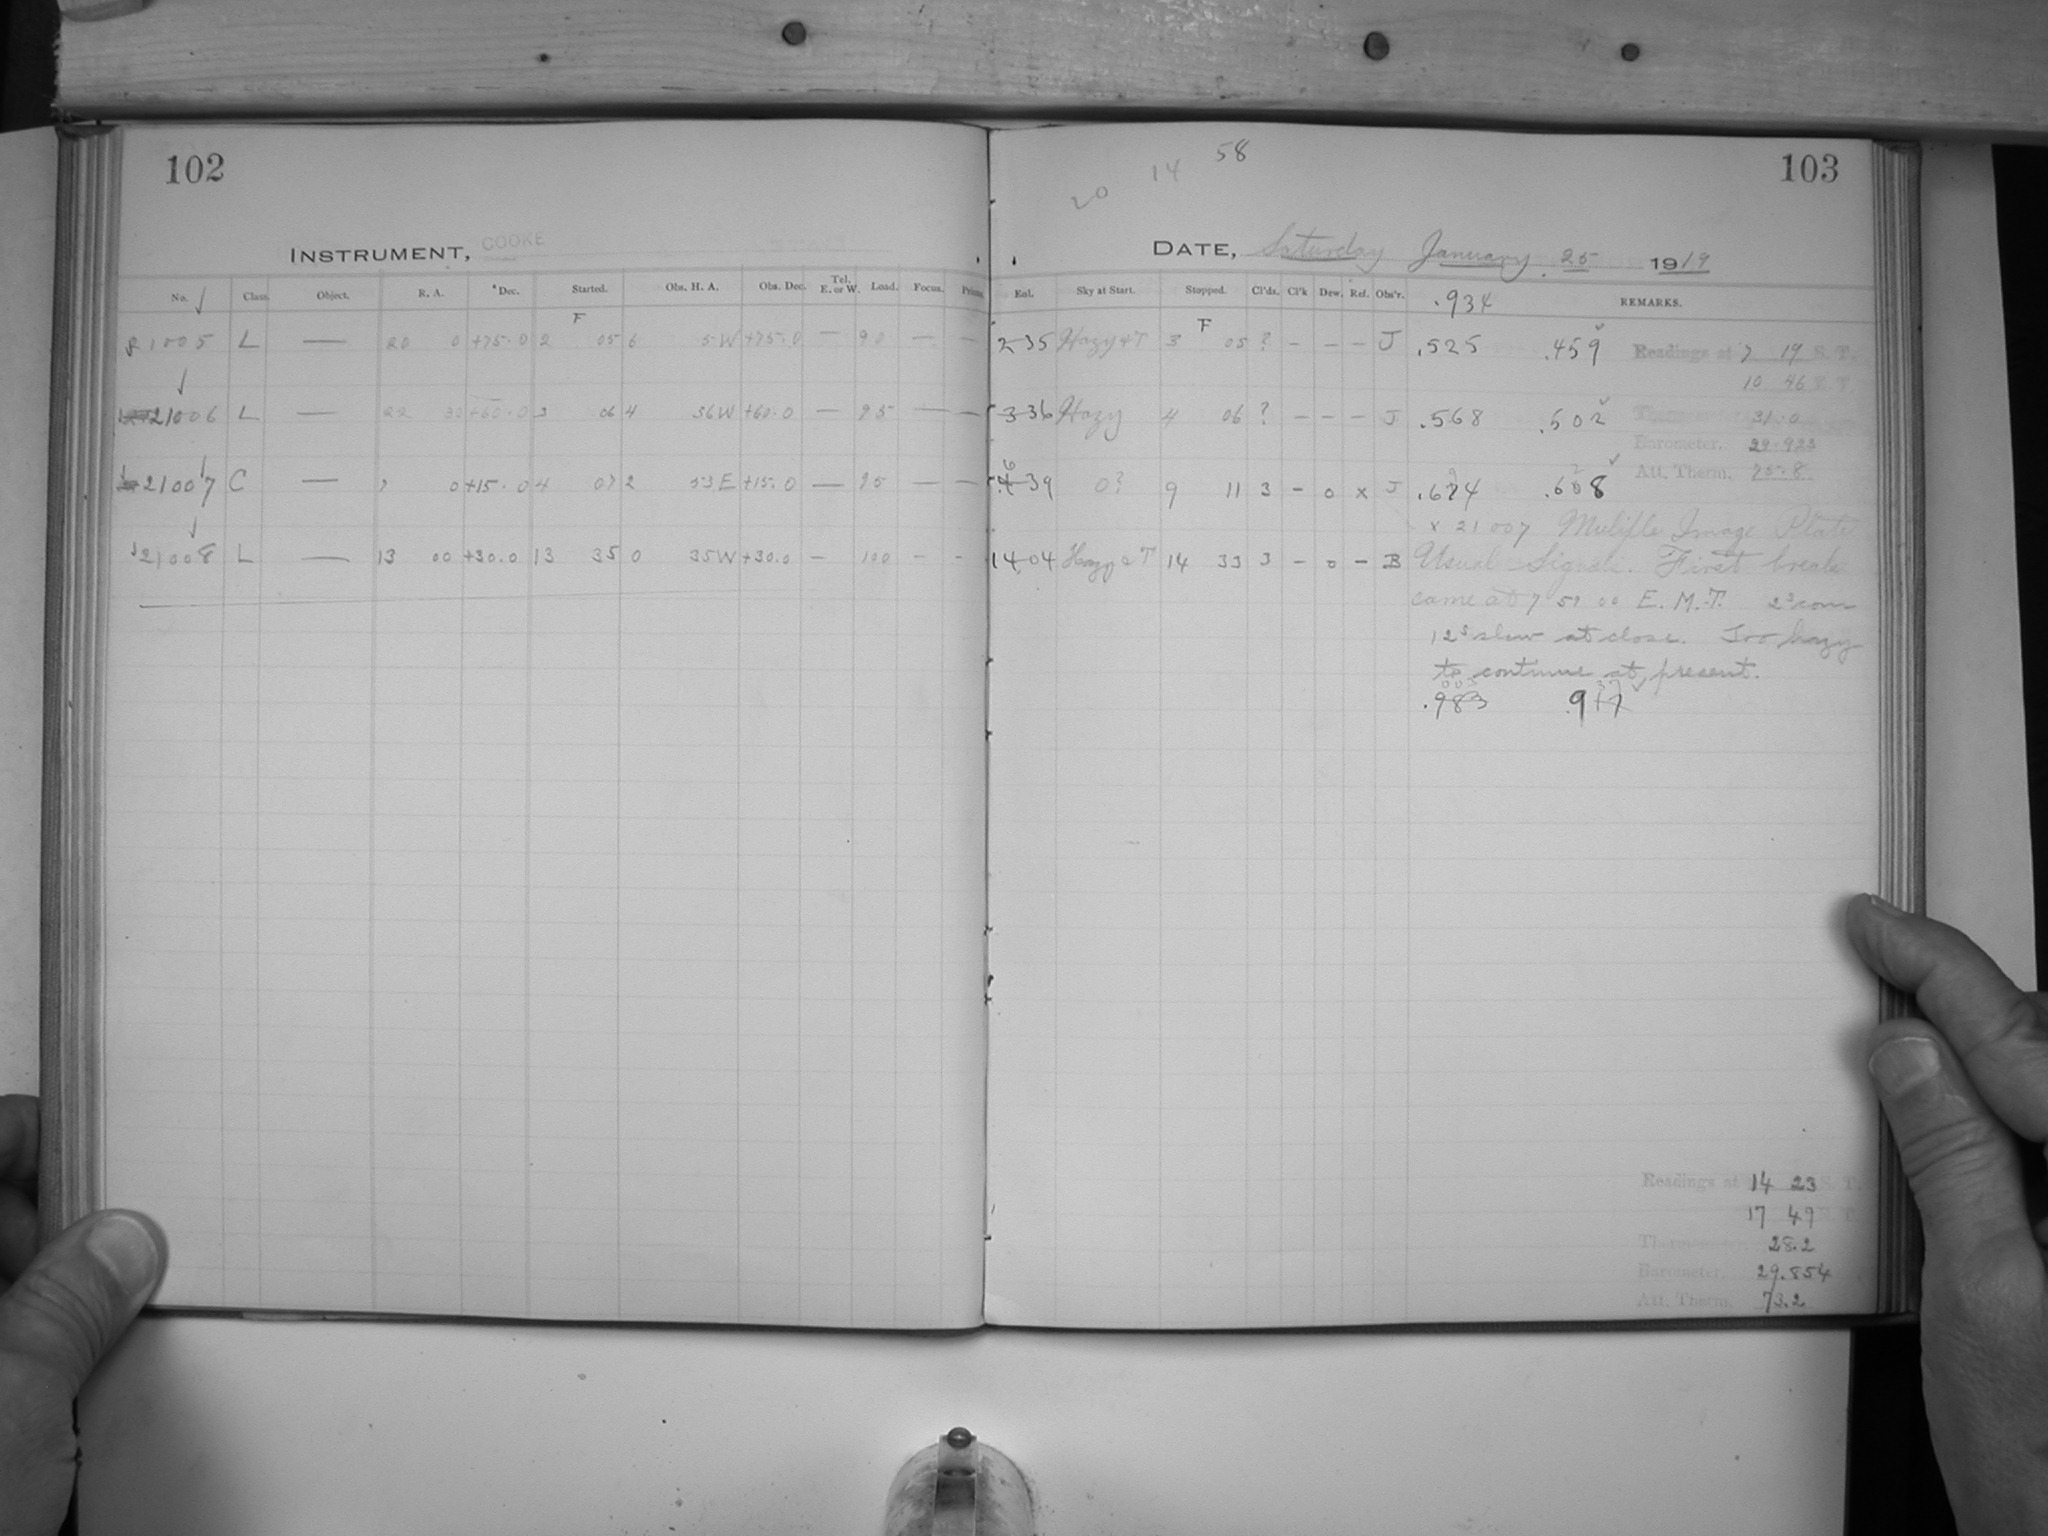 102
INSTRUMENT, COOKE
No. Class. Object. R. A. Dec. Started. Obs. H. A. Obs. Dec. Tel. E. or W. Load. Focus. Prism.
F
21005 L — 20 0 +75.0 2 05 6 5W +75.0 — 90 — —
21006 L — 22 30 +60.0 3 06 4 36W +60.0 — 95 — —
21007 C — 7 0 +15.0 4 07 2 53E +15.0 — 95 — —
21008 L — 13 00 +30.0 13 35 0 35W +30.0 — 100 — -
20 14 58
103
DATE, Saturday January 25 1919
Exl. Sky at Start. Stopped. Cl'ds. Cl'k Dew. Ref. Obs'r. .934 REMARKS.
F
2 35 Hazy + T 3 05 ? - - - J .525 .459
3 36 Hazy 4 06 ? - - - J .568 .502
39 0? 9 11 3 - 0 x J
14 04 Hazy + T 14 33 3 - 0 - B
Readings at 7 19 S. T.
10 46 E. T.
31.0
Barometer. 29.923
Att. Therm. 75.8
x 21007 Multiple Image Plate
Usual Signals. First break
came at 7 59 00 E. M. T.
12s slow at close. Too hazy
to continue at present.
.983 .917
Readings at 14 23 S. T.
17 49
28.2
Barometer. 29.854
Att. Therm. 73.2